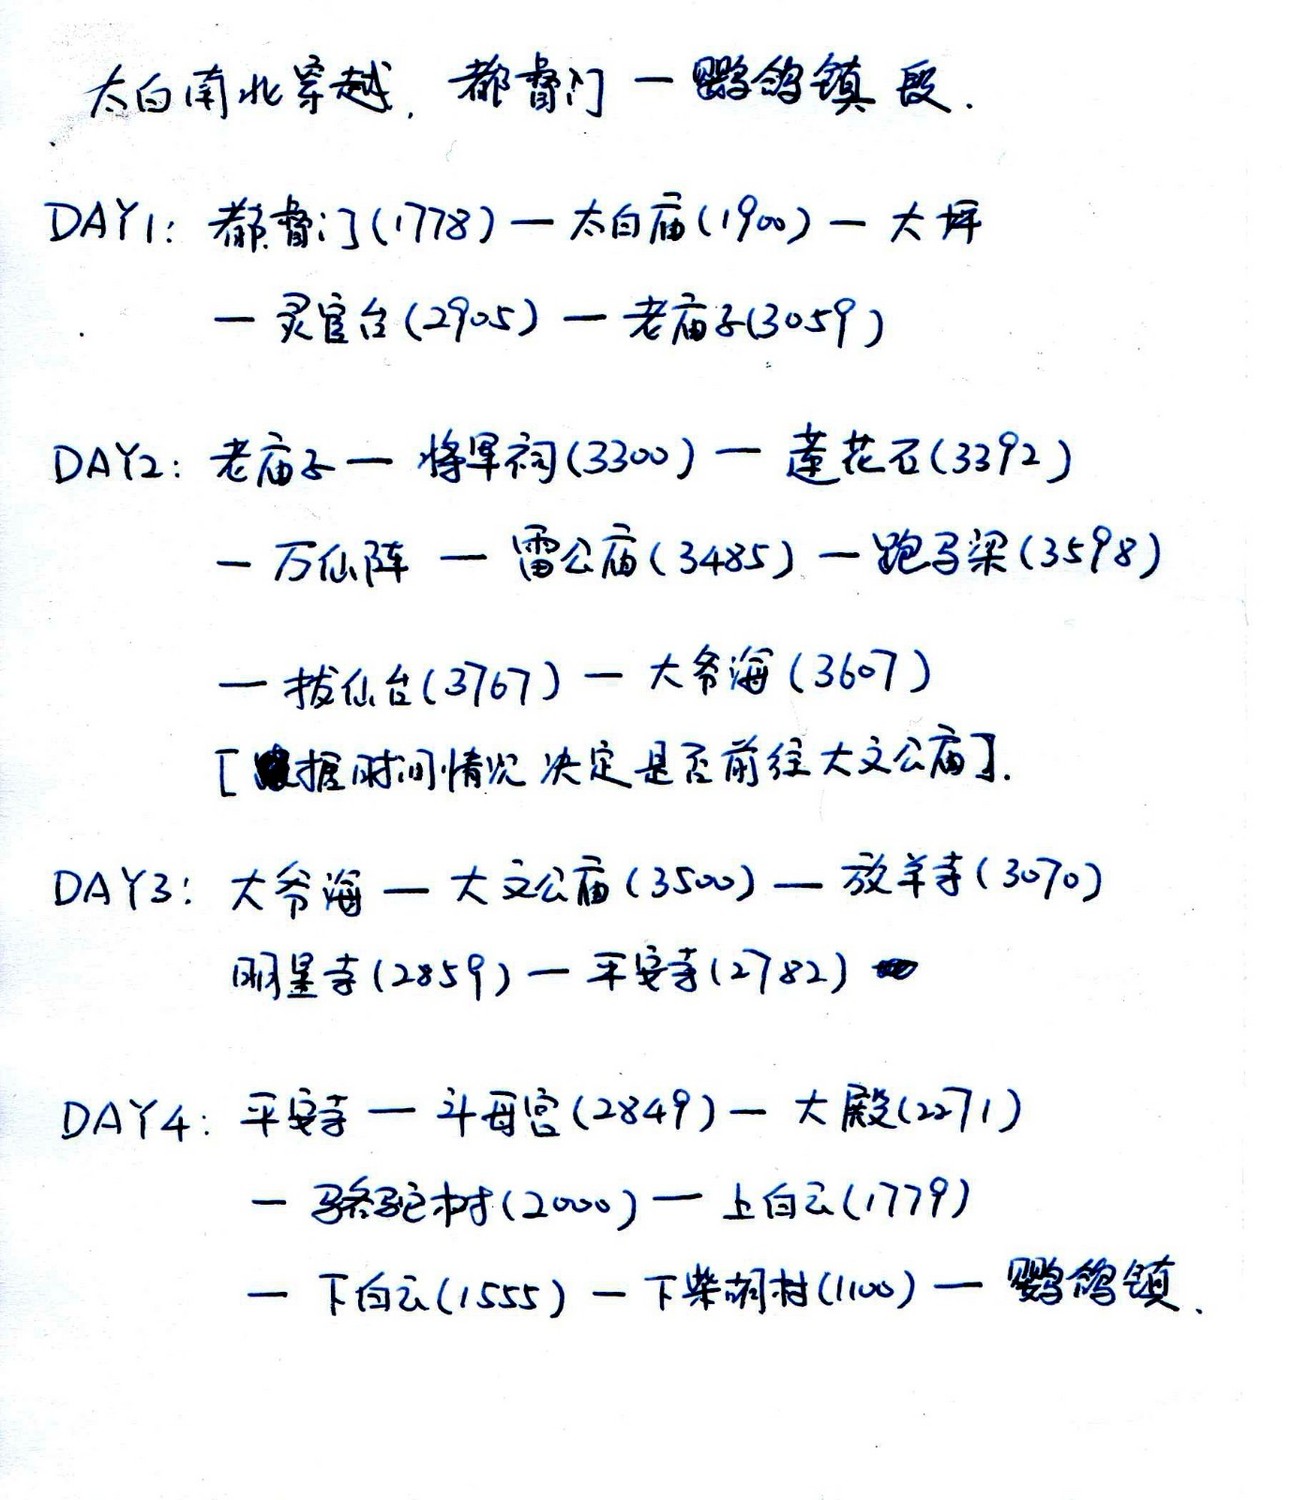 太白南北穿越, 都督门 — 鹦鸽镇 段.
DAY1: 都督门(1778) — 太白庙(1900) — 大坪
— 灵官台(2905) — 老庙子(3059)
DAY2: 老庙子 — 将军祠(3300) — 莲花石(3392)
— 万仙阵 — 雷公庙(3485) — 跑马梁(3598)
— 拔仙台(3767) — 大爷海(3607)
[据时间情况决定是否前往大文公庙].
DAY3: 大爷海 — 大文公庙(3500) — 放羊寺(3070)
明星寺(2859) — 平安寺(2782)
DAY4: 平安寺 — 斗母宫(2849) — 大殿(2271)
— 骆驼树(2000) — 上白云(1779)
— 下白云(1555) — 下柴胡村(1100) — 鹦鸽镇.